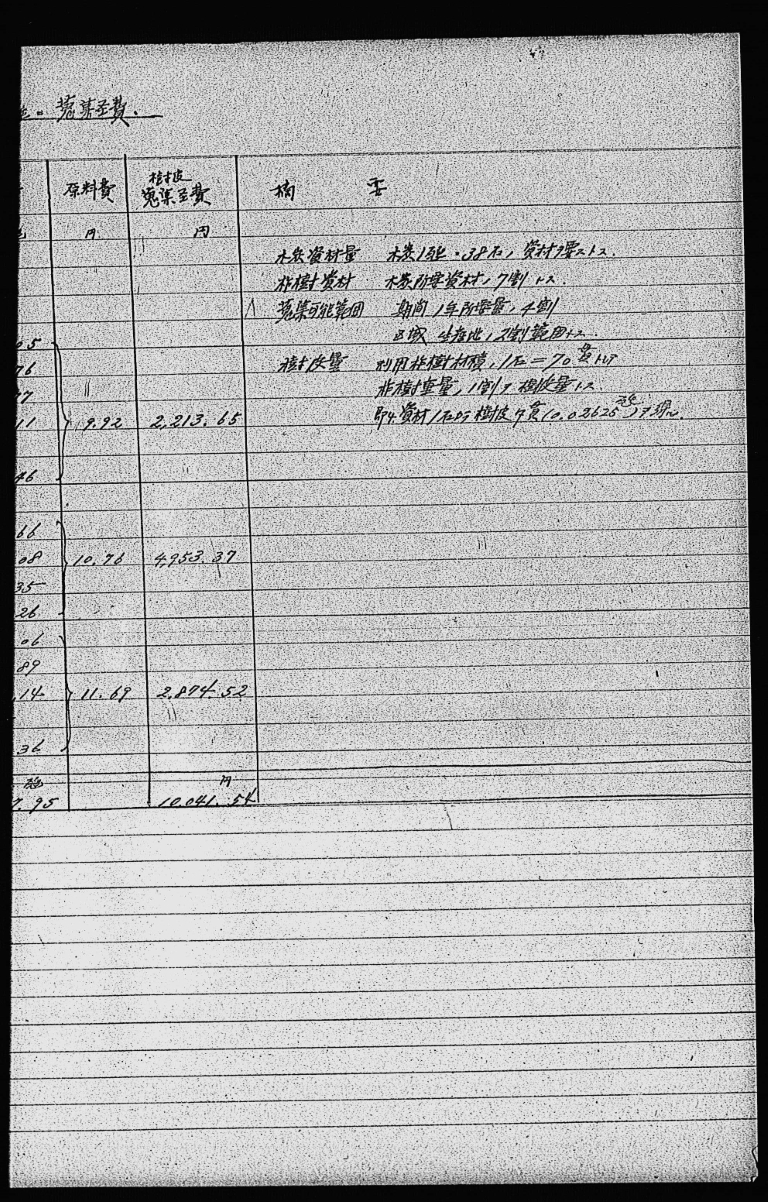 蒐集至費.
原料費 樹皮蒐集至費 摘 要
円 円
木炭資材量 木炭1瓲・38石ノ資材ヲ要ストス.
柞樹資材 木炭所要資材ノ7割トス
蒐集可能範囲 期間 1年所要量ノ4割
区域 生産地ノ2割範囲トス.
樹皮量 利用柞樹材積ノ1石=70貫トシ
柞樹重量ノ1割ヲ樹皮量トス
即チ資材1石ヨリ樹皮7貫(0.02625瓲)ヲ得ル
05
76
11 9.92 2,213.65
46
66
08 10.76 4,953.37
35
26
06
89
.14 11.69 2,874.52
36
瓲 円
7.95 10,041.54